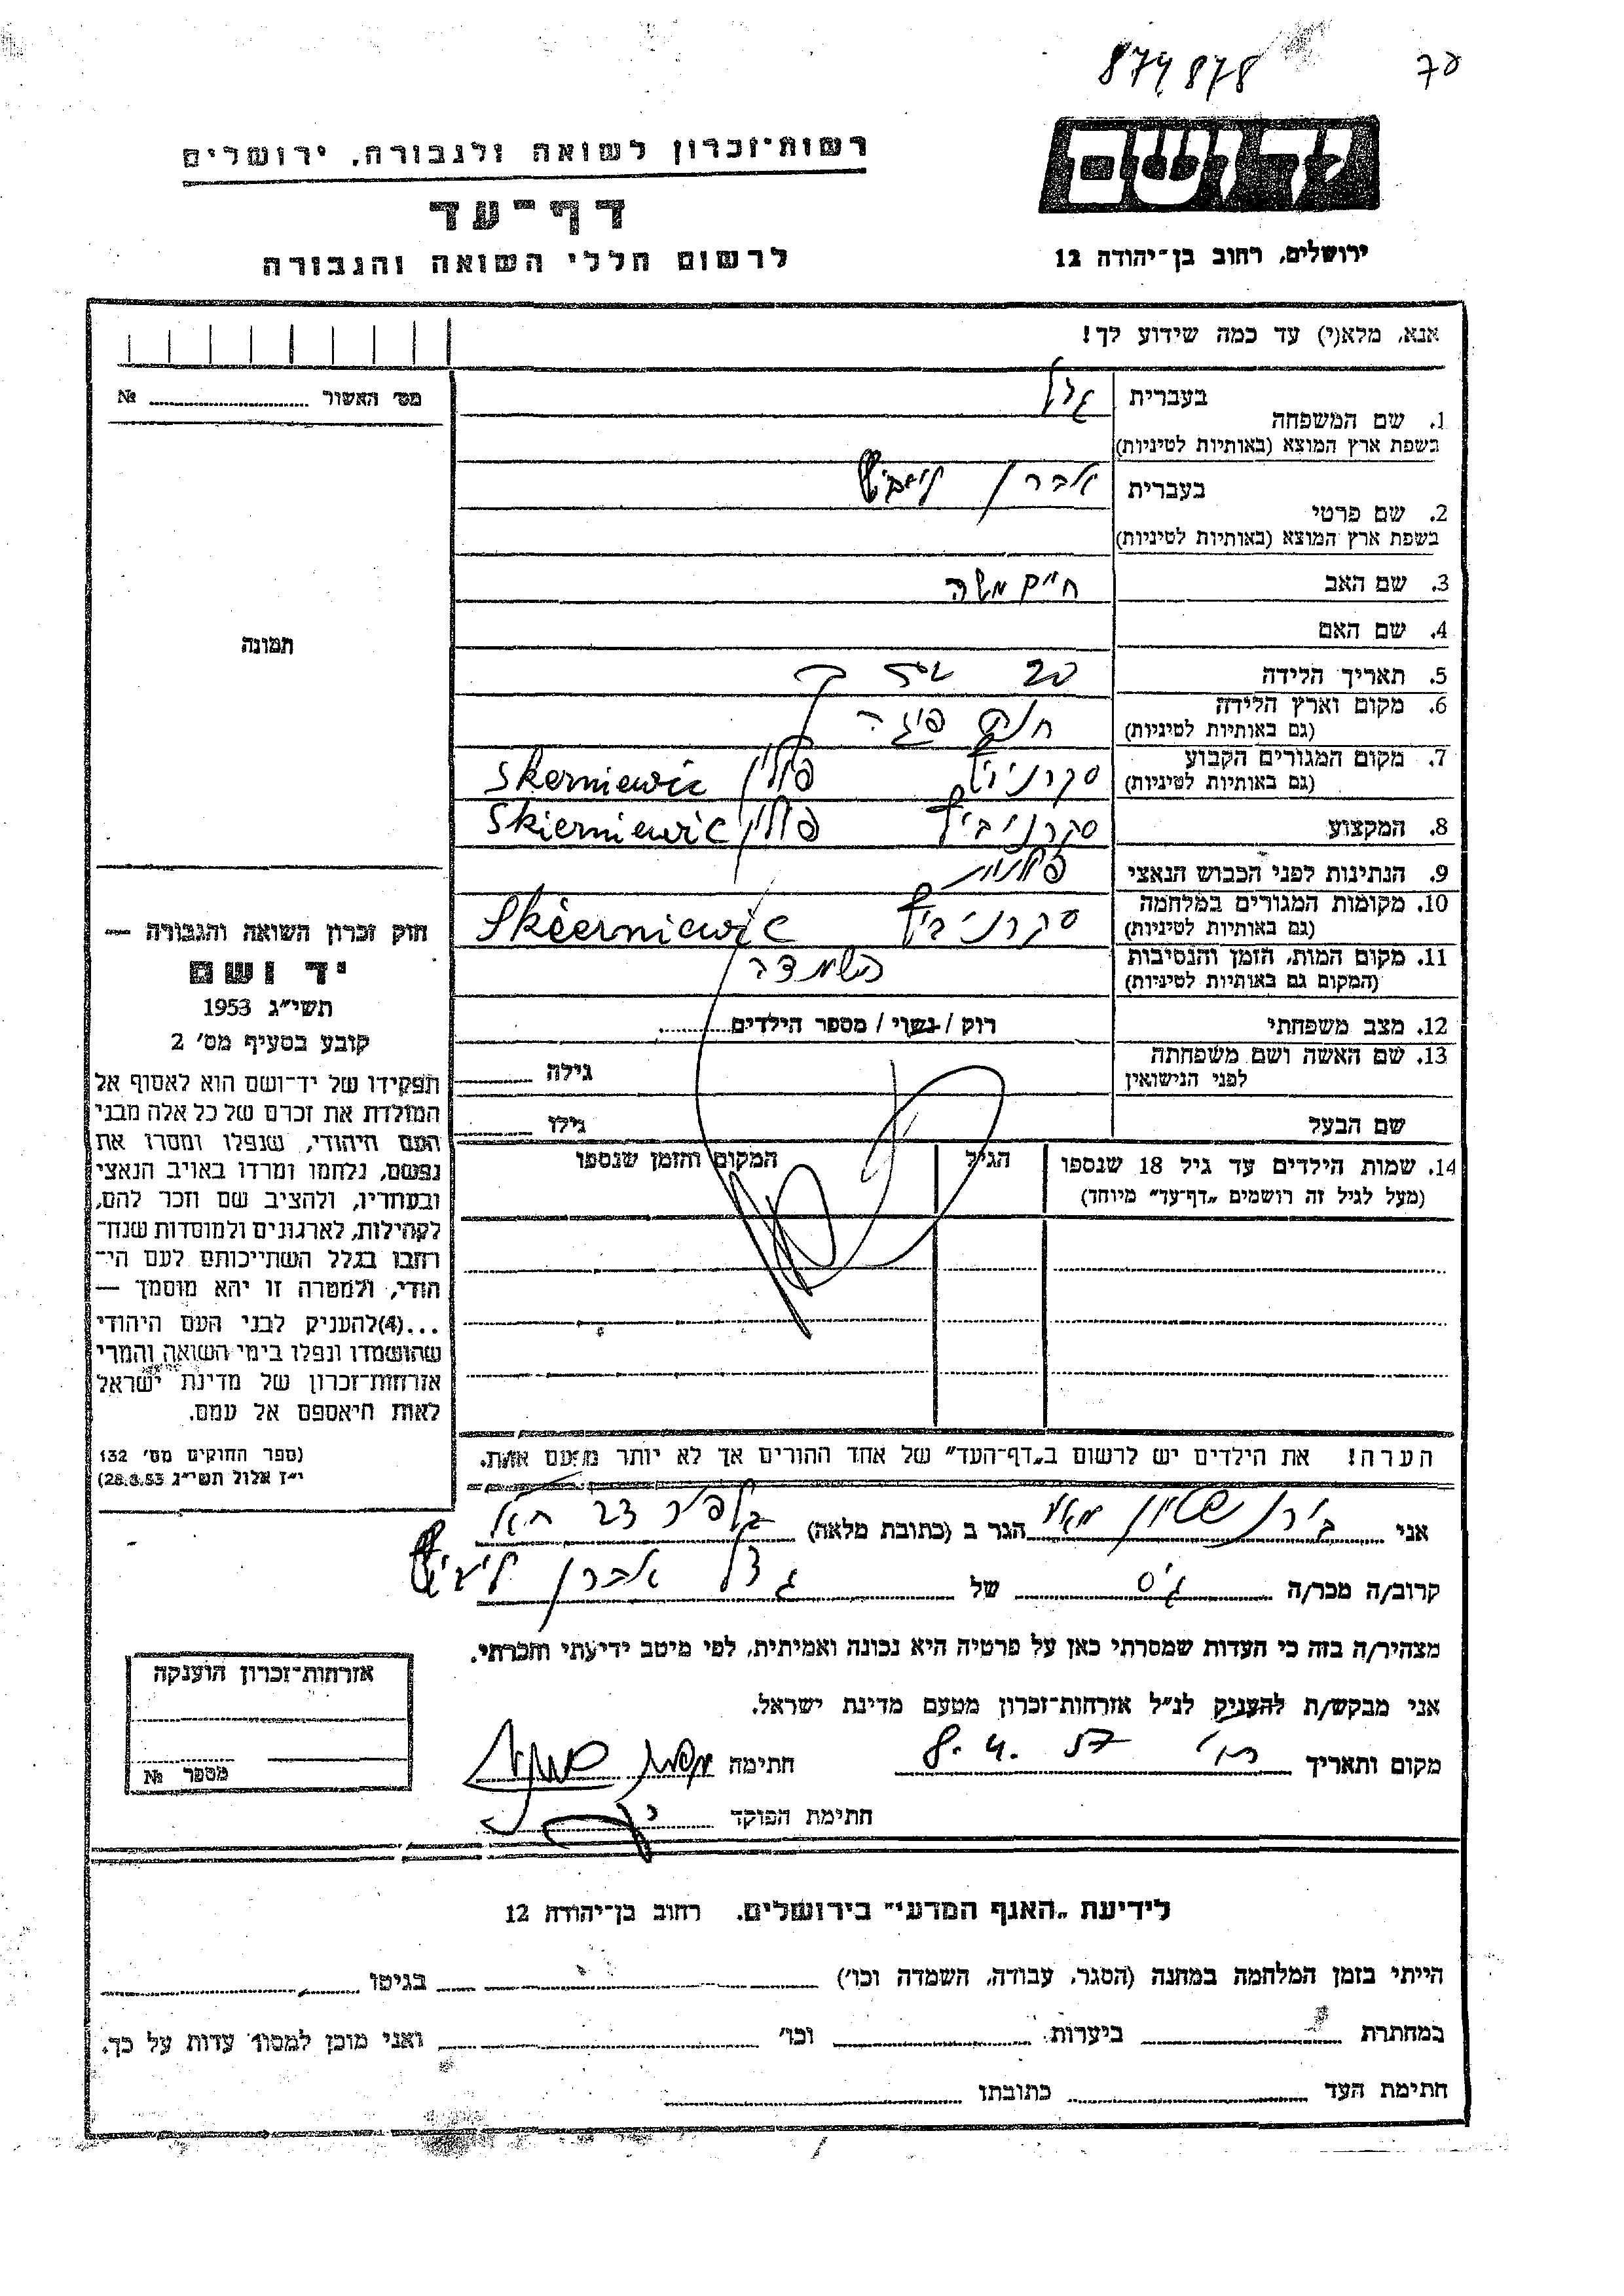 874878
78
יד ושם
ירושלים, רחוב בן־יהודה 12
רשות־זכרון לשואה ולגבורה, ירושלים
דף־עד
לרשום חללי השואה והגבורה
אנא, מלא(י) עד כמה שידוע לך!
מס׳ האשור № 
1. שם המשפחה
בעברית
בשפת ארץ המוצא (באותיות לטיניות)
2. שם פרטי
בעברית אברהם
בשפת ארץ המוצא (באותיות לטיניות)
3. שם האב חיים משה
4. שם האם
5. תאריך הלידה 20
6. מקום וארץ הלידה
(גם באותיות לטיניות)
7. מקום המגורים הקבוע פולין Skerniewic
(גם באותיות לטיניות)
8. המקצוע סקרניביץ פולין Skierniewic
9. הנתינות לפני הכבוש הנאצי פולנית
10. מקומות המגורים במלחמה סקרניביץ Skierniewic
(גם באותיות לטיניות)
11. מקום המות, הזמן והנסיבות השמדה
(המקום גם באותיות לטיניות)
12. מצב משפחתי רוק / נשוי / מספר הילדים
13. שם האשה ושם משפחתה גילה
לפני הנישואין
שם הבעל גילו
14. שמות הילדים עד גיל 18 שנספו הגיל המקום והזמן שנספו
(מעל לגיל זה רושמים „דף־עד" מיוחד)
הערה! את הילדים יש לרשום ב„דף־העד" של אחד ההורים אך לא יותר מפעם אחת.
תמונה
חוק זכרון השואה והגבורה —
יד ושם
תשי״ג 1953
קובע בסעיף מס׳ 2
תפקידו של יד־ושם הוא לאסוף אל
המולדת את זכרם של כל אלה מבני
העם היהודי, שנפלו ומסרו את
נפשם, נלחמו ומרדו באויב הנאצי
ובעוזריו, ולהציב שם וזכר להם,
לקהילות, לארגונים ולמוסדות שנח־
רבו בגלל השתייכותם לעם הי־
הודי, ולמטרה זו יהא מוסמך —
...(4) להעניק לבני העם היהודי
שהושמדו ונפלו בימי השואה והמרי
אזרחות־זכרון של מדינת ישראל
לאות היאספם אל עמם.
(ספר החוקים מס׳ 132
י״ז אלול תשי״ג 28.8.53)
אני הגר ב (כתובת מלאה)
קרוב/ה מכר/ה גיס של אברהם
מצהיר/ה בזה כי העדות שמסרתי כאן על פרטיה היא נכונה ואמיתית, לפי מיטב ידיעתי והכרתי.
אני מבקש/ת להעניק לנ״ל אזרחות־זכרון מטעם מדינת ישראל.
מקום ותאריך 8.4.57 חתימה
חתימת הפוקד
אזרחות־זכרון הוענקה
מספר №
לידיעת „האגף המדעי" בירושלים, רחוב בן־יהודה 12
הייתי בזמן המלחמה במחנה (הסגר, עבודה, השמדה וכו׳) בגיטו
במחתרת ביערות וכו׳ ואני מוכן למסור עדות על כך.
חתימת העד כתובתו